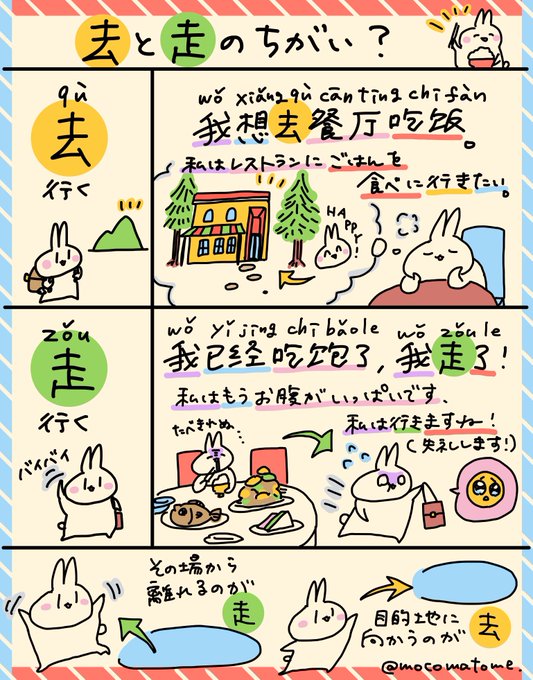 去と走のちがい?
qù
去
行く
wǒ xiǎng qù cān tīng chī fàn
我想去餐厅吃饭。
私はレストランにごはんを
食べに行きたい。
HAPPY!
zǒu
走
行く
バイバイ
wǒ yǐ jīng chī bǎo le
我已经吃饱了,
wǒ zǒu le
我走了!
私はもうお腹がいっぱいです、
私は行きますね!
(失礼します!)
たべきれぬ…
その場から
離れるのが
走
目的地に
向かうのが
去
@mocomatome.